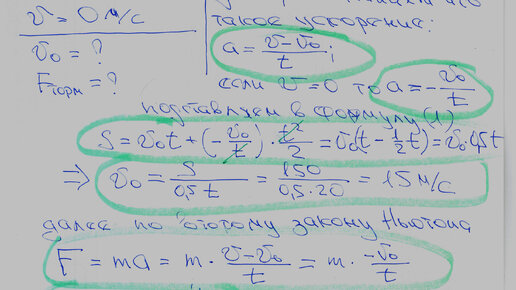 v = 0 м/с
такое ускорение:
v₀ = ?
a = (v - v₀)/t ;
Fторм = ?
если v = 0 то a = - v₀/t
подставляем в формулу (1)
S = v₀t + (- v₀/t) · t²/2 = v₀(t - ½t) = v₀ 0,5t
⇒ v₀ = S/(0,5t) = 150/(0,5·20) = 15 м/с
далее по второму закону Ньютона
F = ma = m · (v - v₀)/t = m · (-v₀)/t